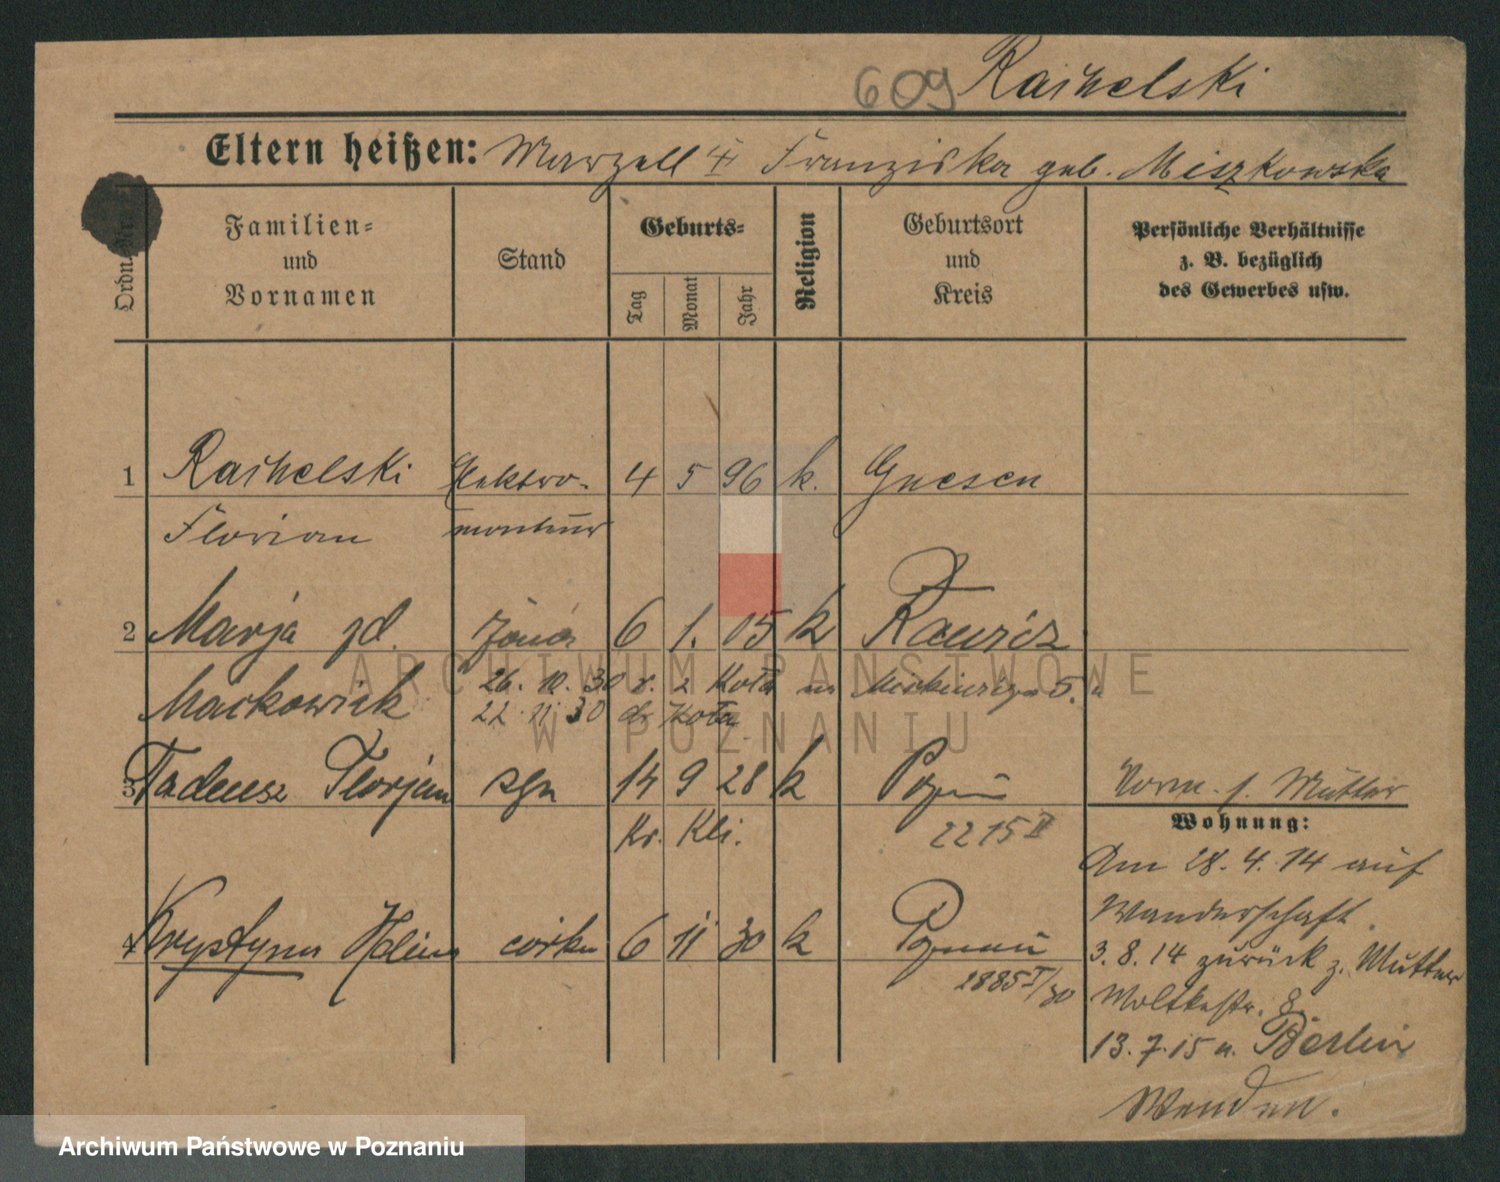 609 Raihelski
Eltern heißen: Marzell Franziska geb. Miszkowska
Ordn.
Familien-
und
Vornamen
Stand
Geburts-
Tag
Monat
Jahr
Religion
Geburtsort
und
Kreis
Persönliche Verhältnisse
z. B. bezüglich
des Gewerbes usw.
1 Raihelski Elektro- 4 5 96 k. Gnesen
Florian monteur
2 Marja żona 6 1. 05 k
Maćkowiak 26. 10. 30
22 11 30
3 Tadeusz Florjan syn 14 9 28 k Poznań Vorm. s. Mutter
Kr. Kli. 2215 II
Wohnung:
Am 28. 4. 14 auf
Wanderschaft.
4 Krystyna córka 6 11 30 k Poznań
3. 8. 14 zurück z. Mutter
2885 I/30 Moltkestr. 8
13. 7. 15 n. Berlin
Wenden.
ARCHIWUM PAŃSTWOWE
W POZNANIU
Archiwum Państwowe w Poznaniu